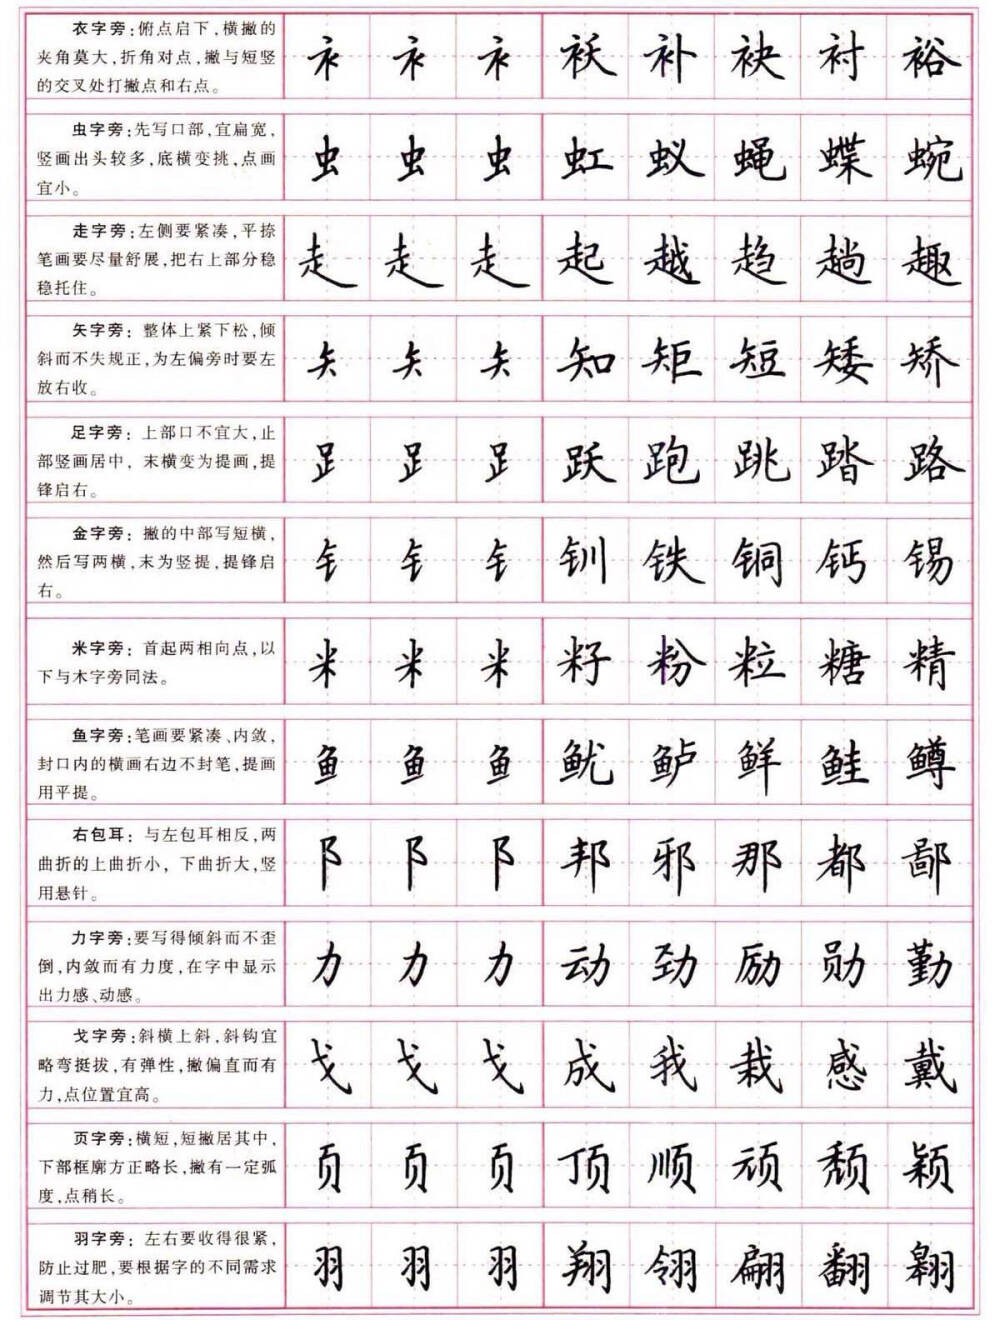 衣字旁:俯点启下,横撇的
夹角莫大,折角对点,撇与短竖
的交叉处打撇点和右点。
衤 衤 衤 袄 补 袂 衬 裕
虫字旁:先写口部,宜扁宽,
竖画出头较多,底横变挑,点画
宜小。
虫 虫 虫 虹 蚁 蝇 蝶 蜿
走字旁:左侧要紧凑,平捺
笔画要尽量舒展,把右上部分稳
稳托住。
走 走 走 起 越 趋 趟 趣
矢字旁:整体上紧下松,倾
斜而不失规正,为左偏旁时要左
放右收。
矢 矢 矢 知 矩 短 矮 矫
足字旁:上部口不宜大,止
部竖画居中,末横变为提画,提
锋启右。
𧾷 𧾷 𧾷 跃 跑 跳 踏 路
金字旁:撇的中部写短横,
然后写两横,末为竖提,提锋启
右。
钅 钅 钅 钏 铁 铜 钙 锡
米字旁:首起两相向点,以
下与木字旁同法。
米 米 米 籽 粉 粒 糖 精
鱼字旁:笔画要紧凑、内敛,
封口内的横画右边不封笔,提画
用平提。
鱼 鱼 鱼 鱿 鲈 鲜 鲑 鳟
右包耳:与左包耳相反,两
曲折的上曲折小,下曲折大,竖
用悬针。
阝 阝 阝 邦 邪 那 都 鄙
力字旁:要写得倾斜而不歪
倒,内敛而有力度,在字中显示
出力感、动感。
力 力 力 动 劲 励 勋 勤
戈字旁:斜横上斜,斜钩宜
略弯挺拔,有弹性,撇偏直而有
力,点位置宜高。
戈 戈 戈 成 我 栽 感 戴
页字旁:横短,短撇居其中,
下部框廓方正略长,撇有一定弧
度,点稍长。
页 页 页 顶 顺 顽 颓 颖
羽字旁:左右要收得很紧,
防止过肥,要根据字的不同需求
调节其大小。
羽 羽 羽 翔 翎 翩 翻 翱